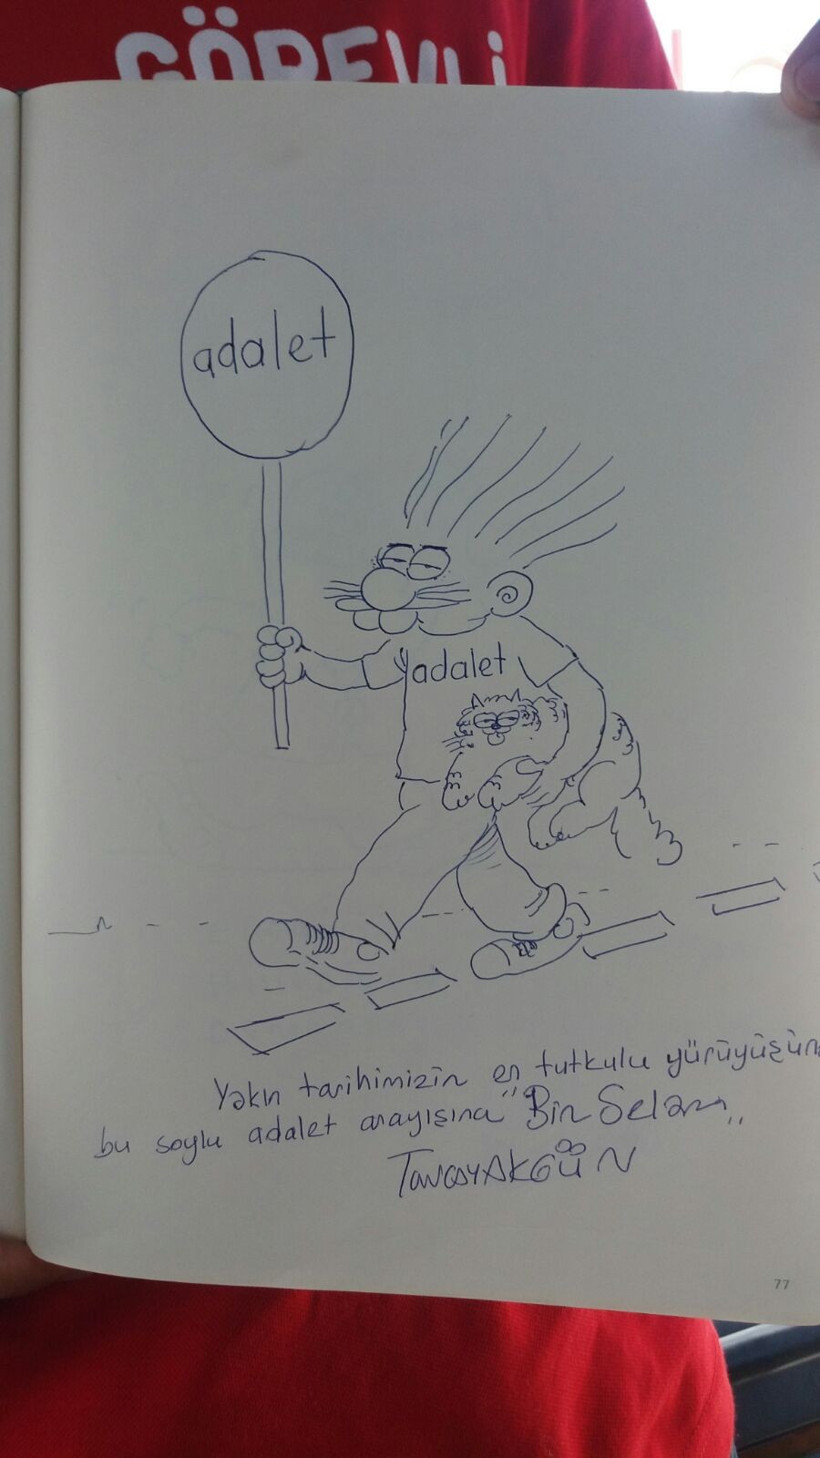 GÖREVLİ
adalet
adalet
Yakın tarihimizin en tutkulu
bu soylu adalet arayışına "Bin Selam"
TUNCAY AKGÜN
77